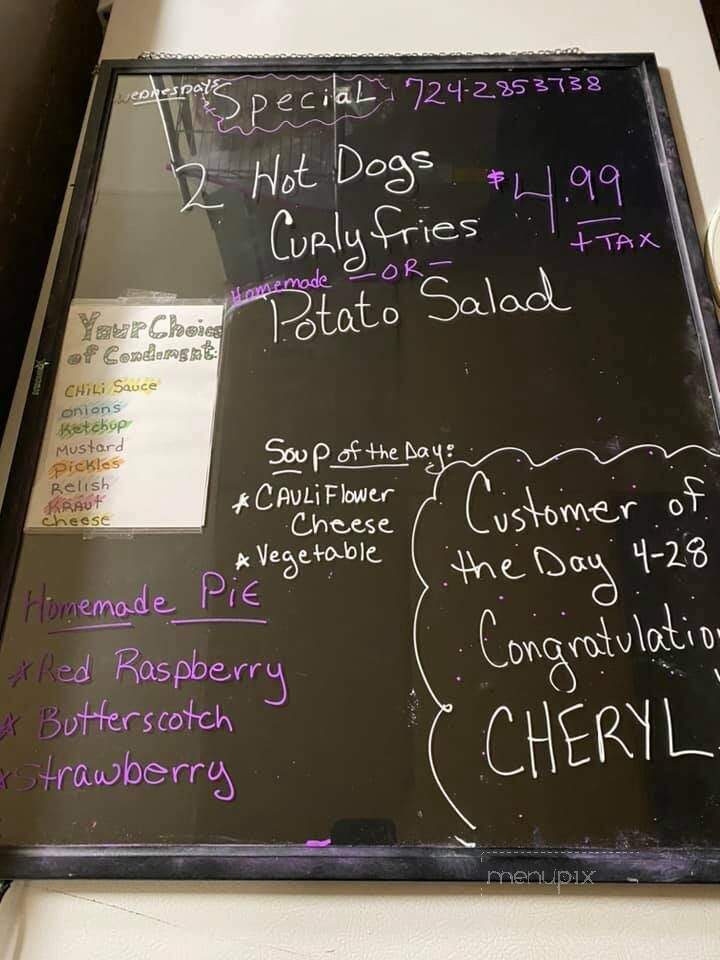 Wednesdays Special 724-2853738
2 Hot Dogs
$4.99
+ TAX
Curly fries
- OR -
Homemade
Potato Salad
Your Choice
of Condiment:
CHiLi Sauce
onions
Ketchup
Mustard
Pickles
Relish
KRAUT
cheese
Soup of the Day:
* CAULiFlower
Cheese
* Vegetable
Customer of
the Day 4-28
Congratulatio
CHERYL
Homemade PiE
* Red Raspberry
* Butterscotch
* Strawberry
menupix